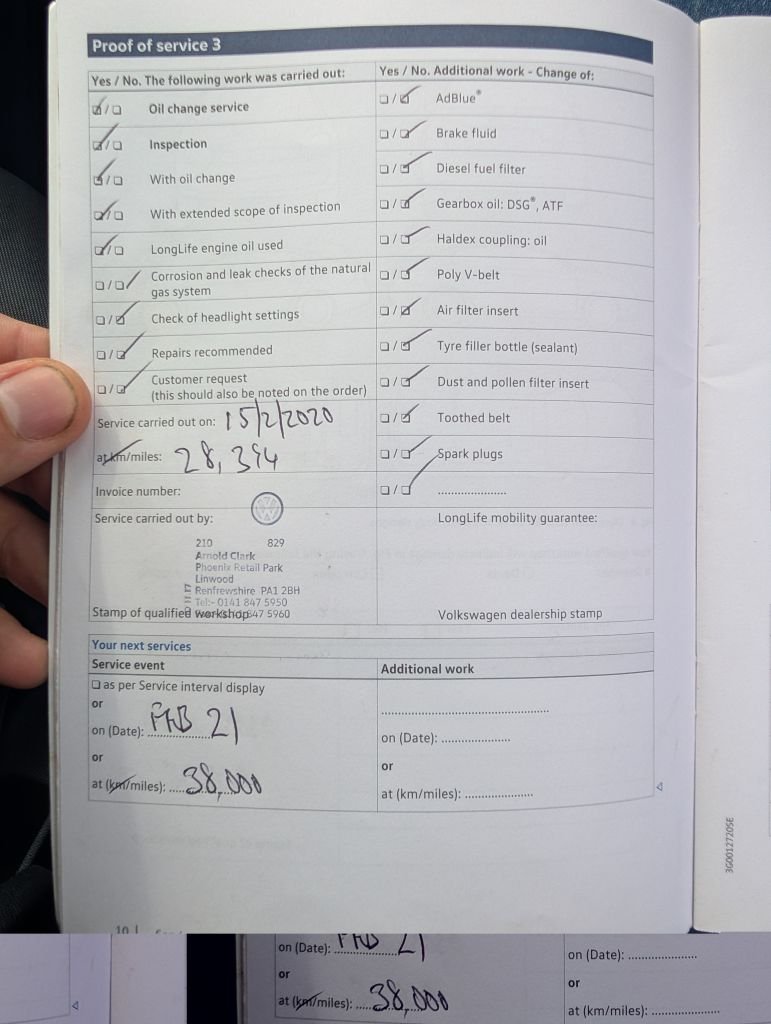 Proof of service 3
Yes / No. The following work was carried out:
☑/☐ Oil change service
☑/☐ Inspection
☑/☐ With oil change
☑/☐ With extended scope of inspection
☑/☐ LongLife engine oil used
☐/☑ Corrosion and leak checks of the natural
gas system
☐/☑ Check of headlight settings
☐/☑ Repairs recommended
☐/☑ Customer request
(this should also be noted on the order)
Service carried out on: 15/2/2020
at km/miles: 28,394
Invoice number:
Service carried out by:
210 829
Arnold Clark
Phoenix Retail Park
Linwood
Renfrewshire PA1 2BH
Tel:- 0141 847 5950
847 5960
Stamp of qualified workshop
Yes / No. Additional work - Change of:
☐/☑ AdBlue®
☐/☑ Brake fluid
☐/☑ Diesel fuel filter
☐/☑ Gearbox oil: DSG®, ATF
☐/☑ Haldex coupling: oil
☐/☑ Poly V-belt
☐/☑ Air filter insert
☐/☑ Tyre filler bottle (sealant)
☐/☑ Dust and pollen filter insert
☐/☑ Toothed belt
☐/☑ Spark plugs
☐/☑ ....................
LongLife mobility guarantee:
Volkswagen dealership stamp
Your next services
Service event
☐ as per Service interval display
or
on (Date): FEB 21
or
at (km/miles): 38,000
Additional work
..................................................
on (Date): ....................
or
at (km/miles): ....................
3G0012720SE
10
on (Date): FEB 21
or
at (km/miles): 38,000
on (Date): ....................
or
at (km/miles): ....................